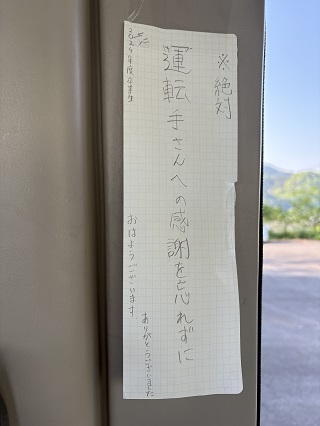 ※絶対
運転手さんへの感謝を忘れずに
ありがとうございました
おはようございます
2024年度卒業生